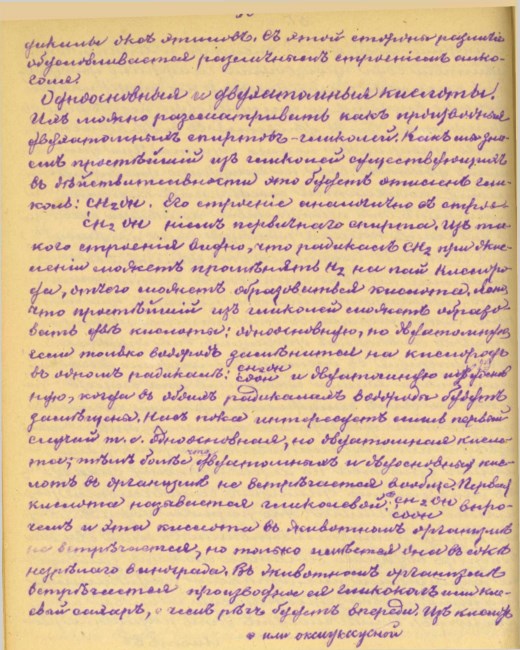 дикалы окс этиловъ. Съ этой стороны различіе
обусловливается различнымъ строеніемъ алко-
голя.
Одноосновныя и двухатомныя кислоты.
Ихъ можно разсматривать какъ производныя
двухатомныхъ спиртовъ-гликолей. Какъ мы зна-
емъ простѣйшій изъ гликолей существующихъ
въ дѣйствительности это будетъ этиленъ гли-
коль: CH2OH. Его строеніе аналогично съ строе-
CH2OH ніемъ первичнаго спирта. Изъ та-
кого строенія видно, что радикалъ CH2 при оки-
сленіи можетъ промѣнять H2 на пай кислоро-
да, отчего можетъ образоваться кислота. Ясно,
что простѣйшій изъ гликолей можетъ образо-
вать двѣ кислоты: одноосновную, но двухатомную
если только водородъ замѣнится на кислородъ
въ одномъ радикалѣ: CH2OH COOH и двухатомную и двуоснов
ную, когда въ обоихъ радикалахъ водороды будутъ
замѣщены. Насъ пока интересуетъ лишь первый
случай т. е. одноосновная, но двухатомная кисло-
та; тѣмъ болѣе что двухатомныхъ и двуосновныхъ кис-
лотъ въ организмѣ не встрѣчается вообще. Первая
кислота называется гликолевой: CH2OH впро-
COOH
чемъ и эта кислота въ животномъ организмѣ
не встрѣчается, но только имѣется она въ сокѣ
незрѣлаго винограда. Въ животномъ организмѣ
встрѣчается производное ея гликоколъ или кле-
евой сахаръ, о чемъ рѣчь будетъ впереди. Изъ кислотъ
или оксиуксусной